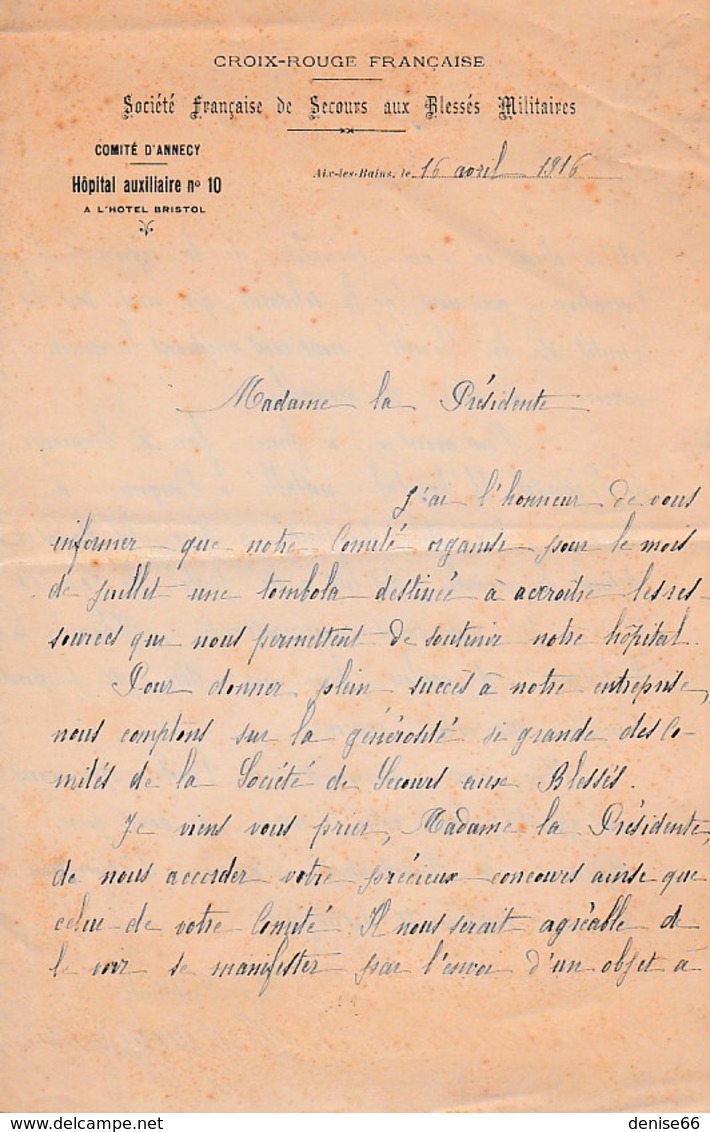 CROIX-ROUGE FRANÇAISE
Société Française de Secours aux Blessés Militaires
COMITÉ D'ANNECY
Hôpital auxiliaire nº 10
A L'HOTEL BRISTOL
Aix-les-Bains, le 16 avril 1916
Madame la Présidente
J'ai l'honneur de vous
informer que notre Comité organise pour le mois
de juillet une tombola destinée à accroitre les res-
sources qui nous permettent de soutenir notre hôpital.
Pour donner plein succès à notre entreprise,
nous comptons sur la générosité si grande des Co-
mités de la Société de Secours aux Blessés.
Je viens vous prier, Madame la Présidente,
de nous accorder votre précieux concours ainsi que
celui de votre Comité. Il nous serait agréable de
le voir se manifester par l'envoi d'un objet à
denise66